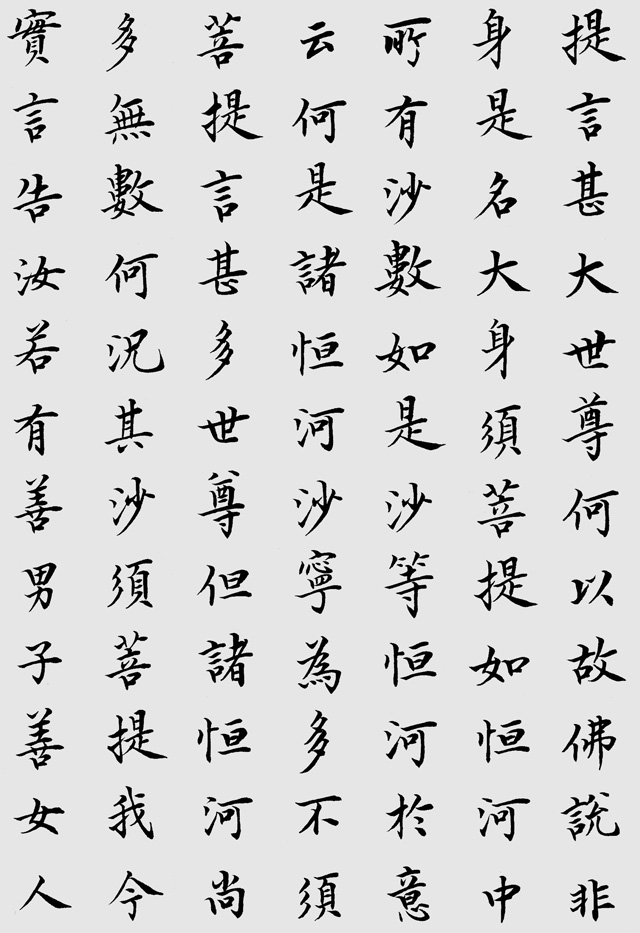 提言甚大世尊何以故佛說非
身是名大身須菩提如恒河中
所有沙數如是沙等恒河於意
云何是諸恒河沙寧為多不須
菩提言甚多世尊但諸恒河尚
多無數何況其沙須菩提我今
實言告汝若有善男子善女人